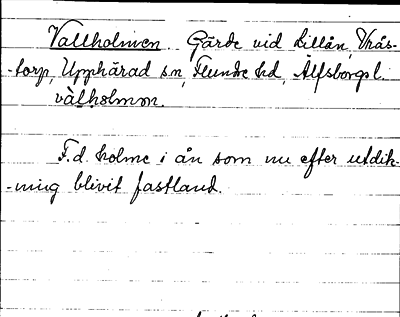 Vallholmen. Gärde vid Lillån, Vrås-
-torp, Upphärad sn, Flundre hd, Älfsborgs l.
vàlholmən.
F.d. holme i ån som nu efter utdik-
-ning blivit fastland.